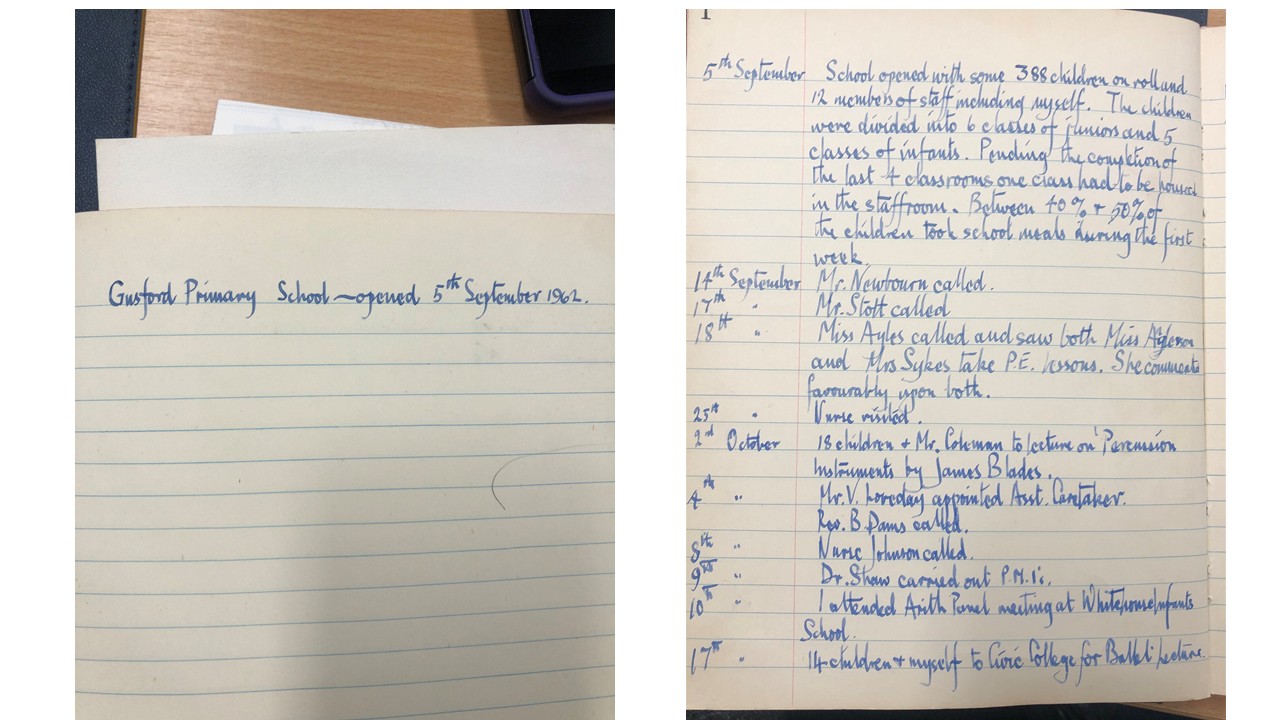 Gusford Primary School – opened 5th September 1962.
1
5th September School opened with some 388 children on roll and
12 members of staff including myself. The children
were divided into 6 classes of juniors and 5
classes of infants. Pending the completion of
the last 4 classrooms one class had to be housed
in the staffroom. Between 40% + 50% of
the children took school meals during the first
week.
14th September Mr. Newbourn called.
17th " Mr. Stott called
18th " Miss Ayles called and saw both Miss
and Mrs Sykes take P.E. lessons. She comments
favourably upon both.
25th " Nurse visited.
2nd October 18 children + Mr. Coleman to lecture on 'Percussion
Instruments by James Blades.
4th " Mr. V. Loveday appointed Asst. Caretaker.
Rev. B. Dams called.
8th " Nurse Johnson called.
9th " Dr. Shaw carried out P.M.I's.
10th " I attended Arith Panel meeting at Whitehouse Infants
School.
17th " 14 children + myself to Civic College for Ballet lecture.